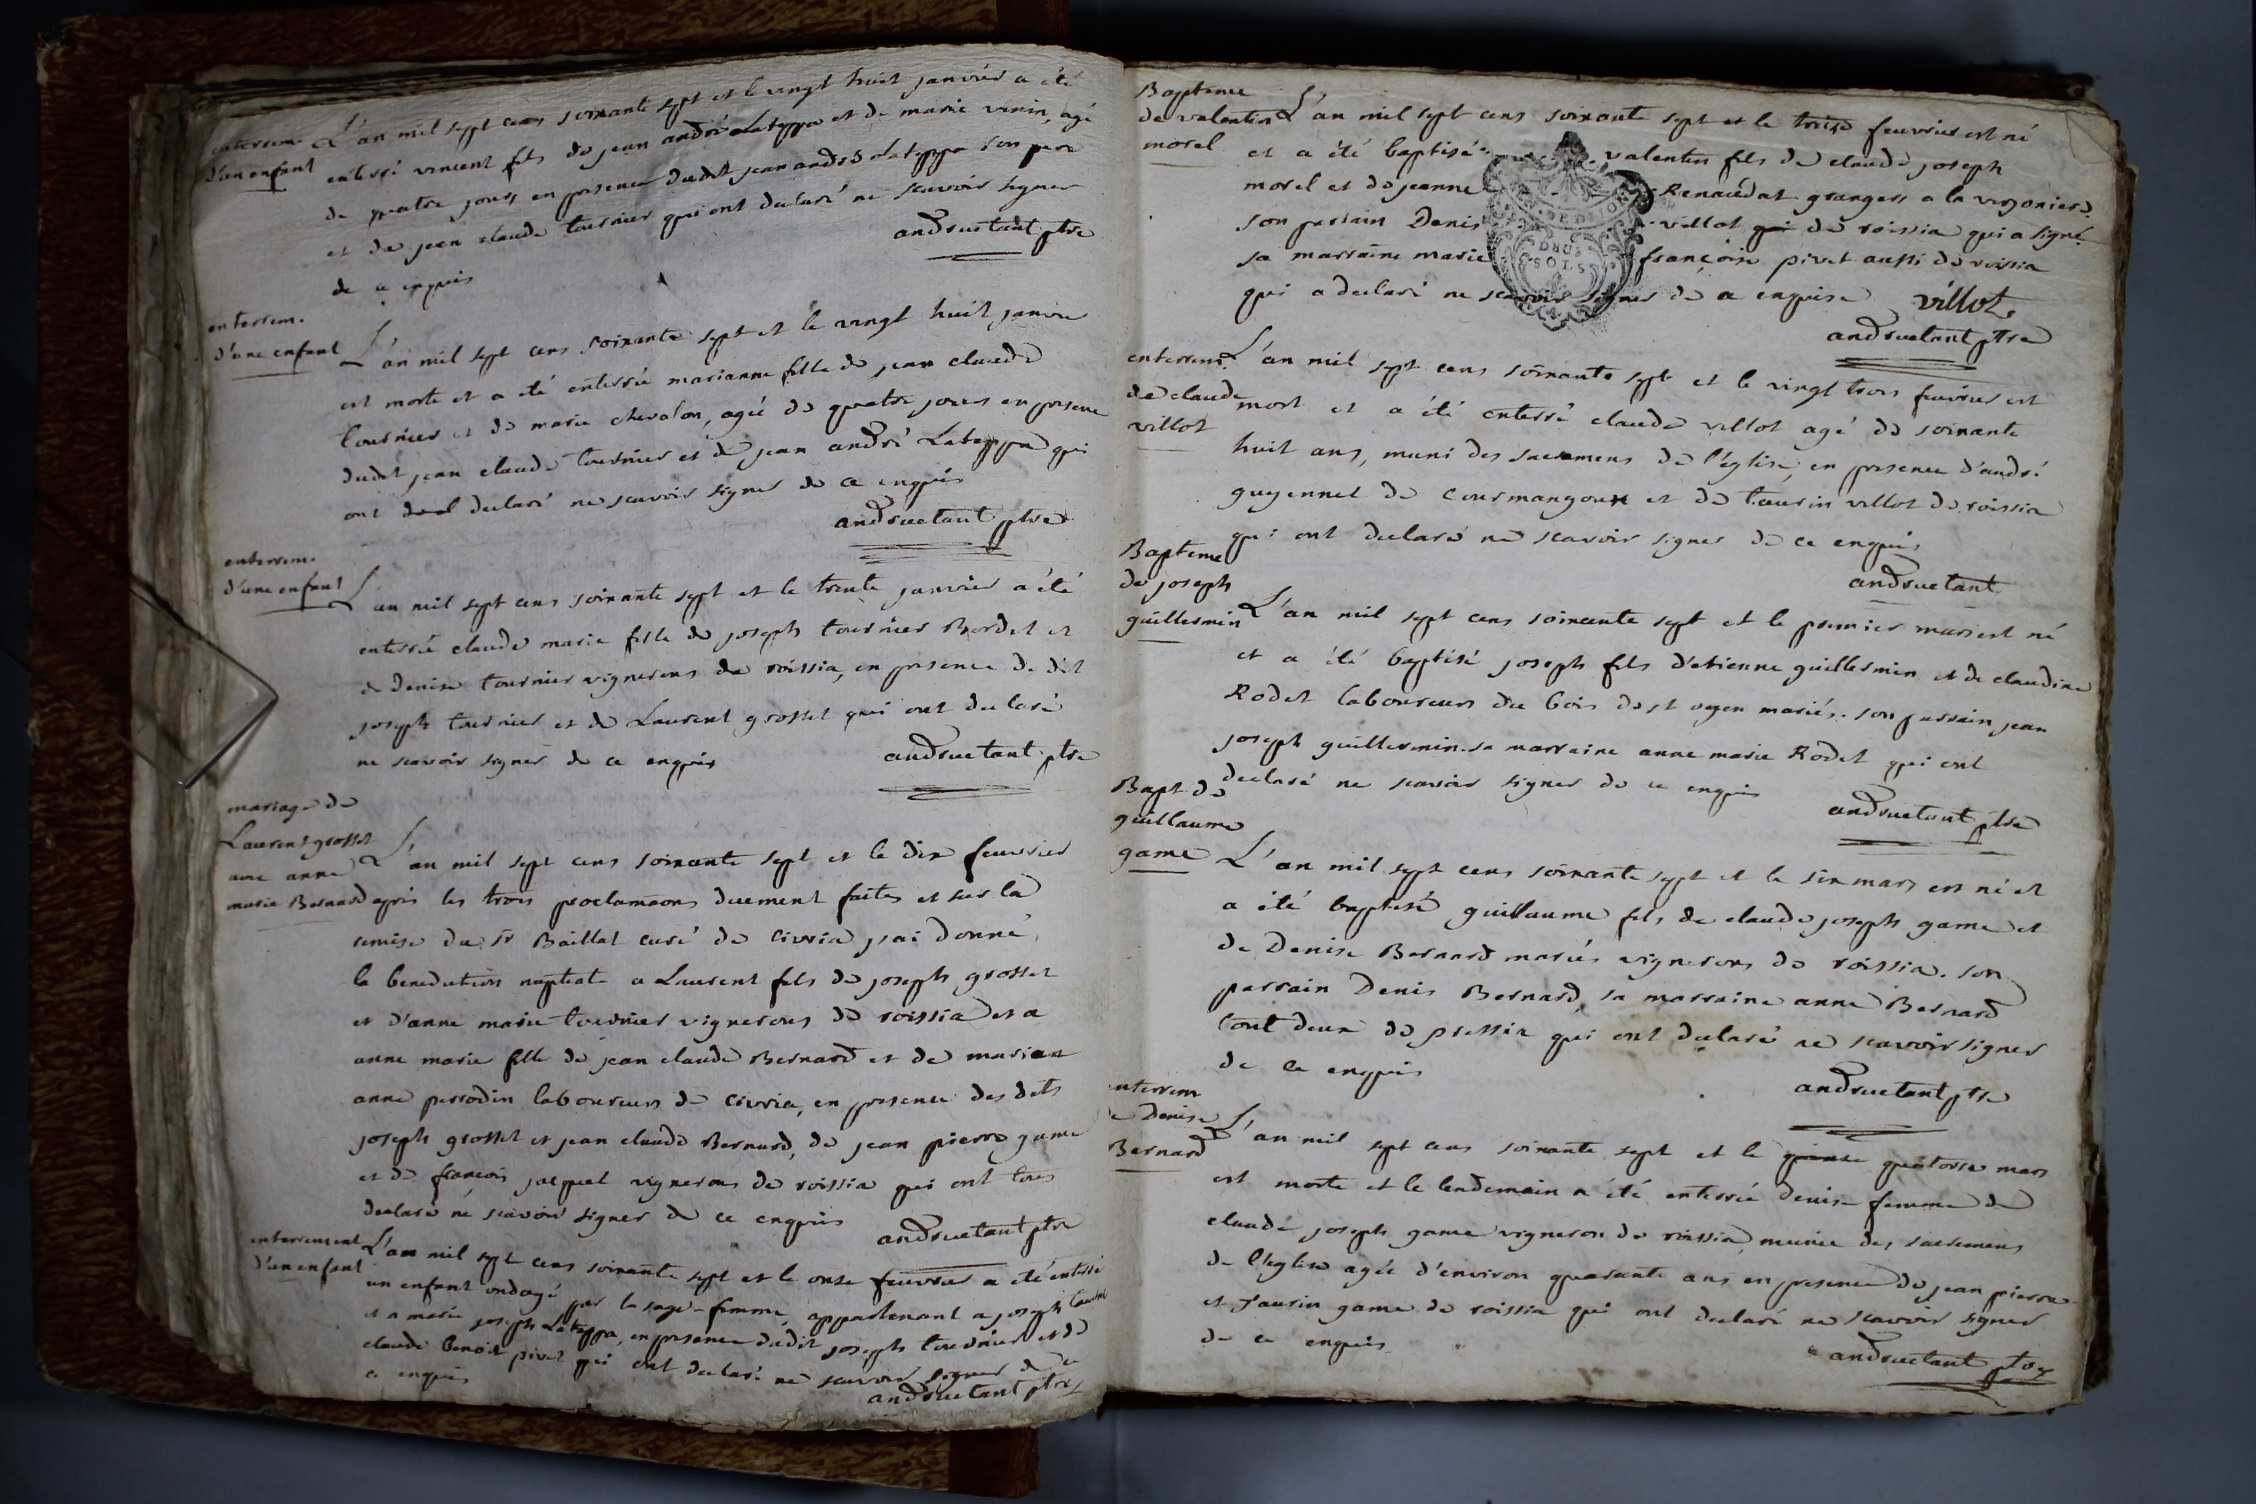 enterrem.
d'un enfant
L'an mil sept cens soixante sept et le vingt huit janvier a été
enterré vincent fils de jean andré Latyppa et de marie vernin, agé
de quatre jours en presence dudit jean andré Latyppa son pere
et de jean claude tournier qui ont declaré ne scavoir signer
de ce enquis
andruetant ptre
enterrem.
d'une enfant
L'an mil sept cens soixante sept et le vingt huit janvier
est morte et a été enterrée marianne fille de jean claude
tournier et de marie chevalon, agée de quatre jours en presence
dudit jean claude tournier et de jean andré Latyppa qui
ont declaré ne scavoir signer de ce enquis
andruetant ptre
enterrem.
d'une enfant
L'an mil sept cens soixante sept et le trente janvier a été
enterrée claude marie fille de joseph tournier Bordet et
de denise tournier vignerons de roissia, en presence de dit
joseph tournier et de Laurent grosset qui ont declaré
ne scavoir signer de ce enquis
andruetant ptre
mariage de
Laurent grosset
avec anne
marie Bernard
L'an mil sept cens soixante sept et le dix feuvrier
apris les trois proclamaons duement faites et sur la
remise du Sr Baillat curé de Civria j'ai donné
la benediction nuptiale a Laurent fils de joseph grosset
et d'anne marie tournier vignerons de roissia et a
anne marie fille de jean claude Bernard et de marian
anne perrodin laboureurs de civria, en presence des dits
joseph grosset et jean claude Bernard, de jean pierre game
et de francois jacquet vignerons de roissia qui ont tous
declaré ne scavoir signer de ce enquis
andruetant ptre
enterrement
d'un enfant
L'an mil sept cens soixante sept et le onze feuvrier a été enterré
un enfant ondoyé par la sage-femme, appartenant a joseph tournier
et a marie joseph Latyppa, en presence dudit joseph tournier et de
claude Benoit pivet qui ont declaré ne scavoir signer de
ce enquis
andruetant ptre
Bapteme
de valentin
morel
L'an mil sept cens soixante sept et le treize feuvrier est né
et a été baptisé valentin fils de claude joseph
morel et de jeanne Renaudat grangers a la verjoniere.
son parrain Denis villot de roissia qui a signé.
sa marraine marie françoise pivet aussi de roissia
qui a declaré ne scavoir signer de ce enquise villot.
andruetant ptre
enterrem.
de claude
villot
L'an mil sept cens soixante sept et le vingt trois feuvrier est
mort et a été enterré claude villot agé de soixante
huit ans, muni des sacremens de l'église, en presence d'andré
guyennet de Courmangoux et de taurin villot de roissia
qui ont declaré ne scavoir signer de ce enquis
andruetant
Bapteme
de joseph
guillermin
L'an mil sept cens soixante sept et le premier mars est né
et a été baptisé joseph fils d'etienne guillermin et de claudine
Rodet laboureurs du bois de st oyen mariés. son parrain jean
joseph guillermin. sa marraine anne marie Rodet qui ont
declaré ne scavoir signer de ce enquis
andruetant ptre
Bapt de
guillaume
game
L'an mil sept cens soixante sept et le six mars est né et
a été baptisé guillaume fils de claude joseph game et
de Denise Bernard mariés vignerons de roissia. son
parrain Denis Bernard, sa marraine anne Bernard
tout deux de pressia qui ont declaré ne scavoir signer
de ce enquis
andruetant ptre
enterrem
de Denise
Bernard
L'an mil sept cens soixante sept et le quinze quatorze mars
est morte et le lendemain a été enterrée Denise femme de
claude joseph game vigneron de roissia, munie des sacremens
de l'église agée d'environ quarante ans en presence de jean pierre
et taurin game de roissia qui ont declaré ne scavoir signer
de ce enquis
andruetant ptre